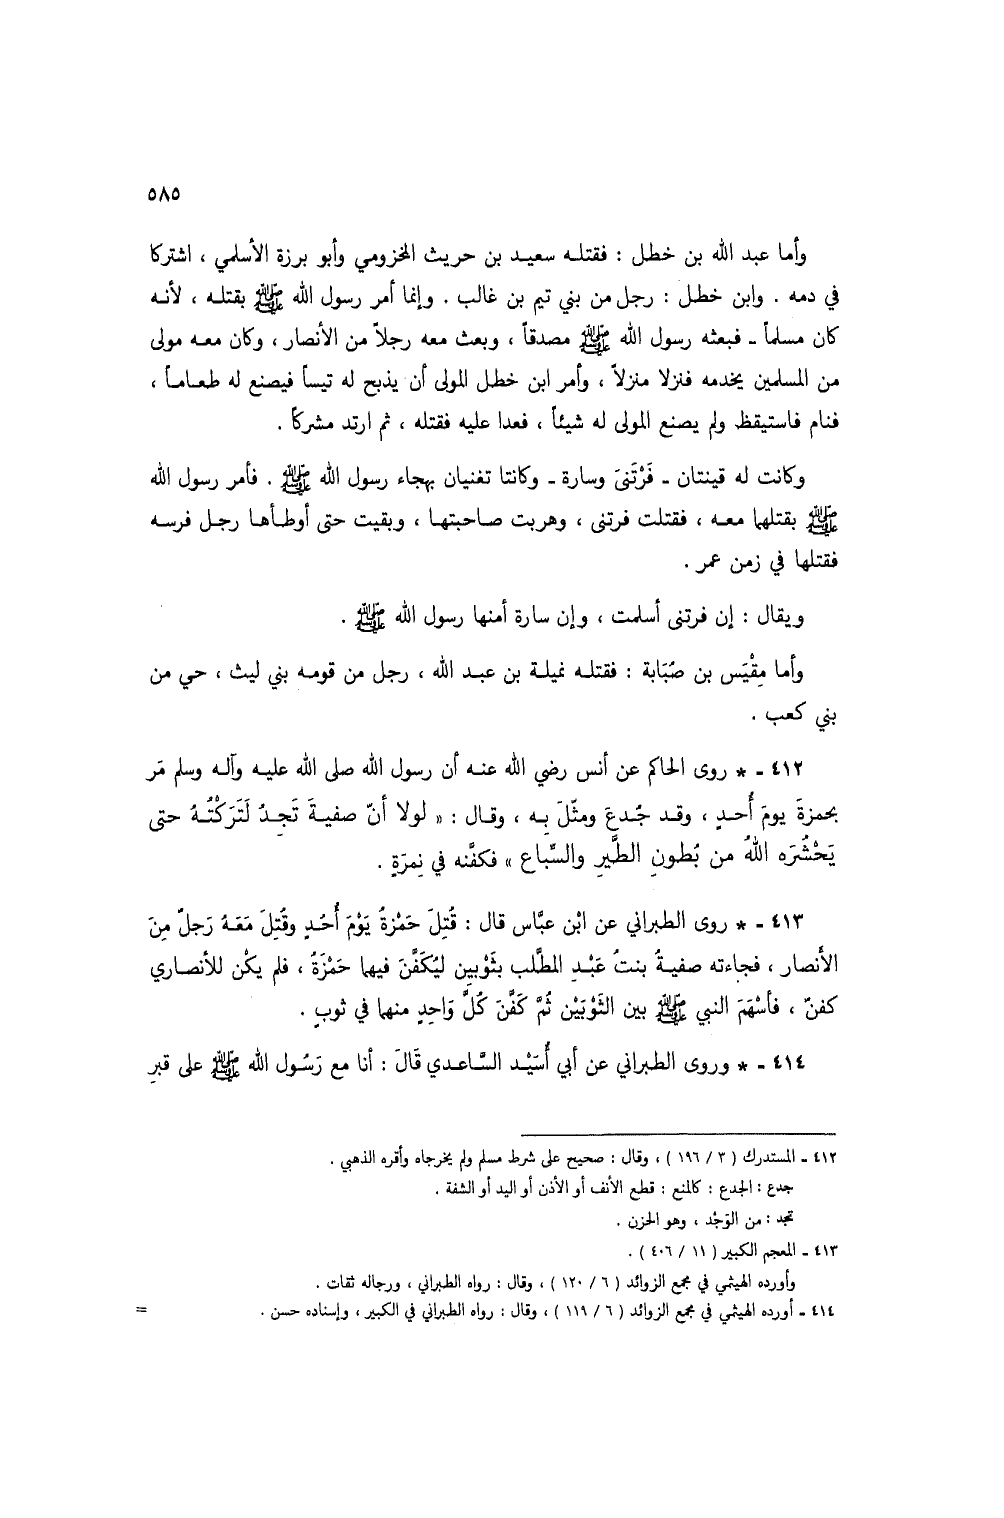 ٥٨٥
وأما عبد الله بن خطل : فقتله سعيد بن حريث المخزومي وأبو برزة الأسلمي ، اشتركا
في دمه . وابن خطل : رجل من بني تيم بن غالب . وإنما أمر رسول الله ﷺ بقتله ، لأنه
كان مسلماً ـ فبعثه رسول الله ﷺ مصدقاً ، وبعث معه رجلاً من الأنصار ، وكان معه مولى
من المسلمين يخدمه فنزلا منزلاً ، وأمر ابن خطل المولى أن يذبح له تيساً فيصنع له طعاماً ،
فنام فاستيقظ ولم يصنع المولى له شيئاً ، فعدا عليه فقتله ، ثم ارتد مشركاً .
وكانت له قينتان ـ فَرْتَنىَ وسارة ـ وكانتا تغنيان بهجاء رسول الله ﷺ . فأمر رسول الله
ﷺ بقتلهما معه ، فقتلت فرتنى ، وهربت صاحبتها ، وبقيت حتى أوطأها رجل فرسه
فقتلها في زمن عمر .
ويقال : إن فرتنى أسلمت ، وإن سارة أمنها رسول الله ﷺ .
وأما مِقْيَس بن صُبَابة : فقتله نميلة بن عبد الله ، رجل من قومه بني ليث ، حي من
بني كعب .
٤١٢ ـ * روى الحاكم عن أنس رضي الله عنه أن رسول الله صلى الله عليه وآله وسلم مَر
بحمزةَ يومَ أُحدٍ ، وقد جُدعَ ومثّلَ بِه ، وقال : « لولا أنّ صفيةَ تَجدُ لَتَرَكْتُهُ حتى
يَحْشُرَه اللهُ من بُطونِ الطَّيرِ والسِّباع » فكفَّنه في نِمرَةٍ .
٤١٣ ـ * روى الطبراني عن ابْن عبَّاس قال : قُتِلَ حَمْزةُ يَوْمَ أُحُدٍ وقُتِلَ مَعَهُ رَجلٌ مِنَ
الأَنصار ، فجاءته صفيةُ بنتُ عَبْدِ المطَّلب بثَوْبين ليُكَفَّنَ فيهما حَمْزَةُ ، فلم يكُن للأنصاري
كفنٌ ، فأسْهَمَ النبي ﷺ بين الثَوْبَيْن ثُمَّ كَفَّنَ كُلَّ وَاحِدٍ منهما في ثوبٍ .
٤١٤ ـ * وروى الطبراني عن أبي أُسَيْد السَّاعدي قَالَ : أنا مع رَسُول الله ﷺ على قبرِ
٤١٢ ـ المستدرك ( ٣ / ١٩٦ ) ، وقال : صحيح على شرط مسلم ولم يخرجاه وأقره الذهبي .
جدع : الجدع : كالمنع : قطع الأنف أو الأذن أو اليد أو الشفة .
تجد : من الوَجْد ، وهو الحزن .
٤١٣ ـ المعجم الكبير ( ١١ / ٤٠٦ ) .
وأورده الهيثمي في مجمع الزوائد ( ٦ / ١٢٠ ) ، وقال : رواه الطبراني ، ورجاله ثقات .
٤١٤ ـ أورده الهيثمي في مجمع الزوائد ( ٦ / ١١٩ ) ، وقال : رواه الطبراني في الكبير ، وإسناده حسن . =